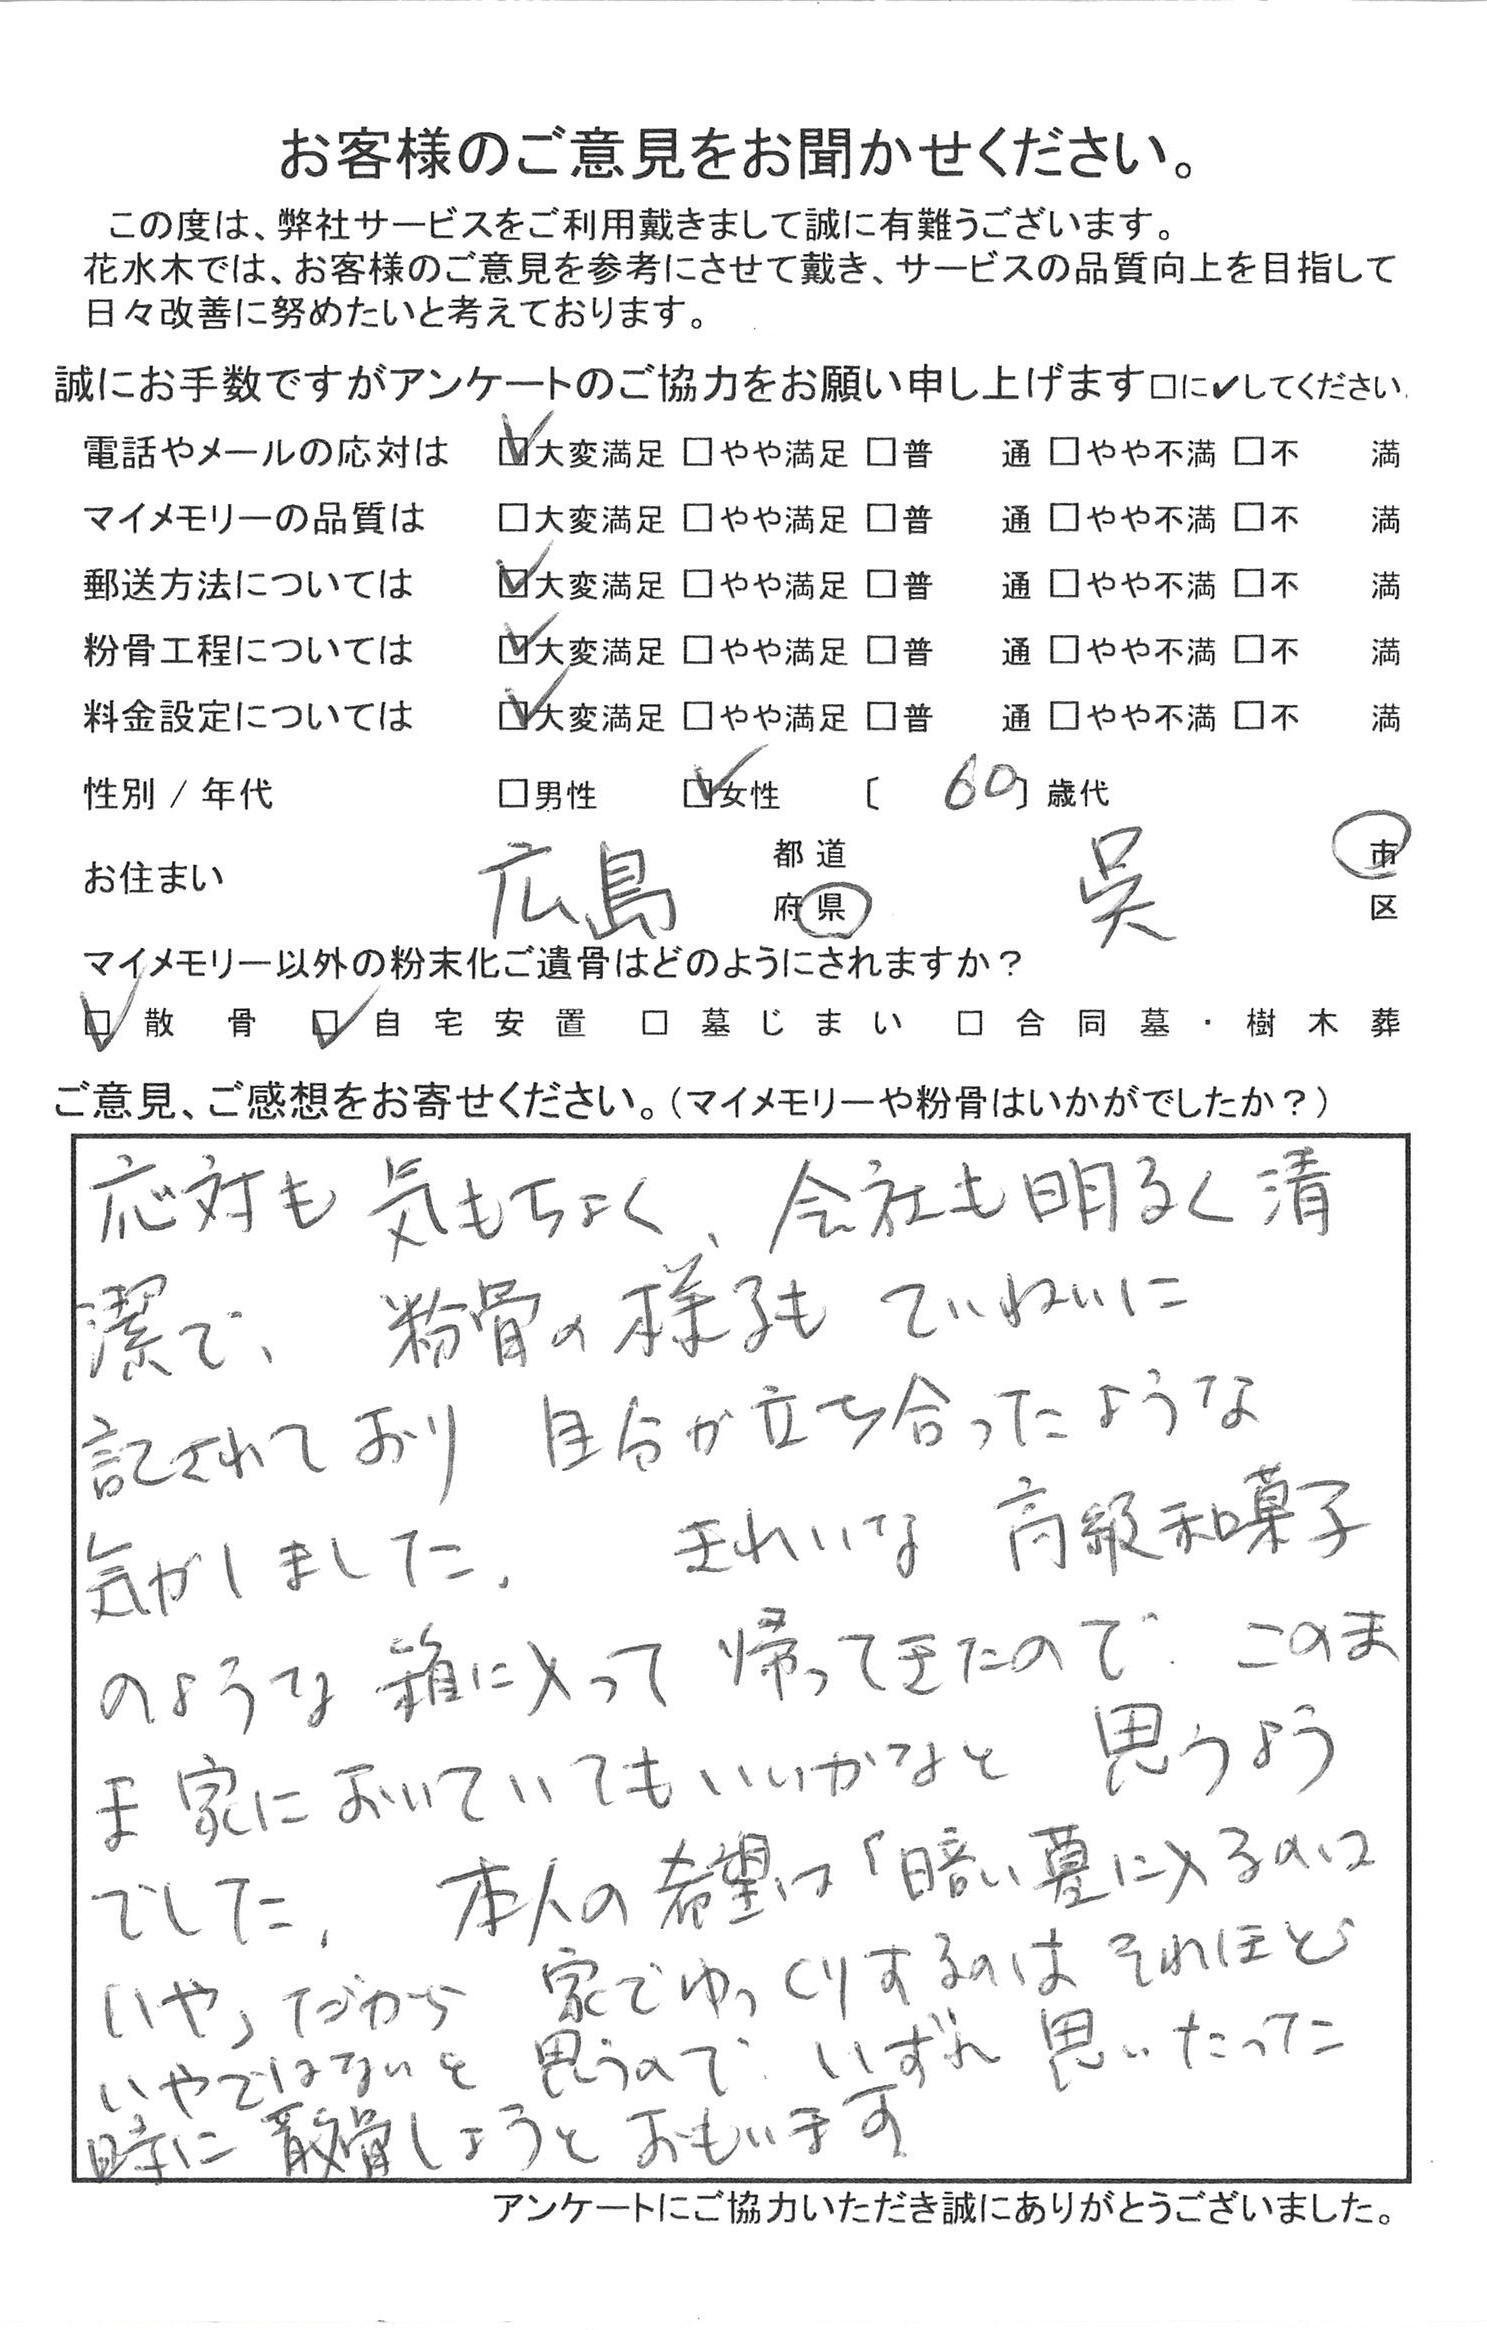 お客様のご意見をお聞かせください。
この度は、弊社サービスをご利用戴きまして誠に有難うございます。
花水木では、お客様のご意見を参考にさせて戴き、サービスの品質向上を目指して
日々改善に努めたいと考えております。
誠にお手数ですがアンケートのご協力をお願い申し上げます□に✔してください.
電話やメールの応対は ☑大変満足 □やや満足 □普 通 □やや不満 □不 満
マイメモリーの品質は □大変満足 □やや満足 □普 通 □やや不満 □不 満
郵送方法については ☑大変満足 □やや満足 □普 通 □やや不満 □不 満
粉骨工程については ☑大変満足 □やや満足 □普 通 □やや不満 □不 満
料金設定については ☑大変満足 □やや満足 □普 通 □やや不満 □不 満
性別 / 年代 □男性 ☑女性 〔 60 〕歳代
お住まい 広島 都道府県 呉 市区
マイメモリー以外の粉末化ご遺骨はどのようにされますか？
☑散骨 ☑自宅安置 □墓じまい □合同墓・樹木葬
ご意見、ご感想をお寄せください。（マイメモリーや粉骨はいかがでしたか？）
応対も気もちよく、会社も明るく清
潔で、粉骨の様子もていねいに
記されており 自分が立ち合ったような
気がしました。 きれいな 高級和菓子
のような 箱に入って 帰ってきたので、このま
ま 家においていてもいいかなと 思うよう
でした。 本人の希望は「暗い墓に入るのは
いや」だから 家でゆっくりするのは それほど
いやではないと 思うので、いずれ 思いたった
時に 散骨しようと おもいます。
アンケートにご協力いただき誠にありがとうございました。